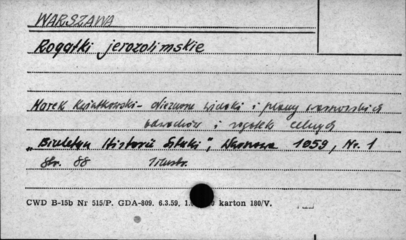 WARSZAWA
Rogatki jerozolimskie
Marek Kwiatkowski - nieznane widoki i plany warszawskich
odwachów i rogatek celnych
"Biuletyn Historii Sztuki", Warszawa 1959, Nr. 1
Str. 88 Ilustr.
CWD B-15b Nr 515/P. GDA-809. 6.3.59. karton 180/V.